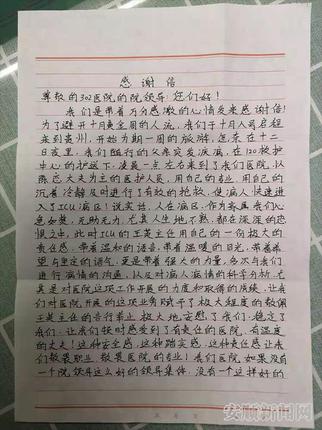 感谢信
尊敬的302医院的院领导:您们好!
我们是带着万分感激的心情发来感谢信!
为了避开十月黄金周的人流,我们于十月八号启程
来到贵州,开始为期一周的旅游,但是在十二
日夜里,我们随行的父亲突发状况,在120救护
中心的护送下,凌晨一点左右来到了我们医院,以
大夫为主的医护人员,用自己的专业,用自己的
沉着冷静及时进行了有效的抢救,使病人快速进
入了ICU病区!说实话,人在病,作为家属我们心
急如焚,无助无力,尤其人生地不熟,都在深深的恐
惧之中,此时ICU的王英主任用自己的一份极大的
责任感,带着温和的语音,带着温暖的目光,带着希
望与坚定的语气,更是带着强大的力量,多次与我们
进行病情的沟通,以及对病人病情的科学分析,尤
其是对医院这项工作开展的力度和取得的成绩,让我
们对医院开展的这项业务赋予了极大程度的敬佩
王英主任的言行举止极大地安慰了我们,稳定了
我们,让我们顿时感受到了有责任的医院,有温度
的大夫!这种安全感,这种踏实感,这种责任感让我
们敬畏职业,敬畏医院的专业!我们医院,如果没有
一个院领导这么好的领导集体,没有一个这样好的
安顺新闻网